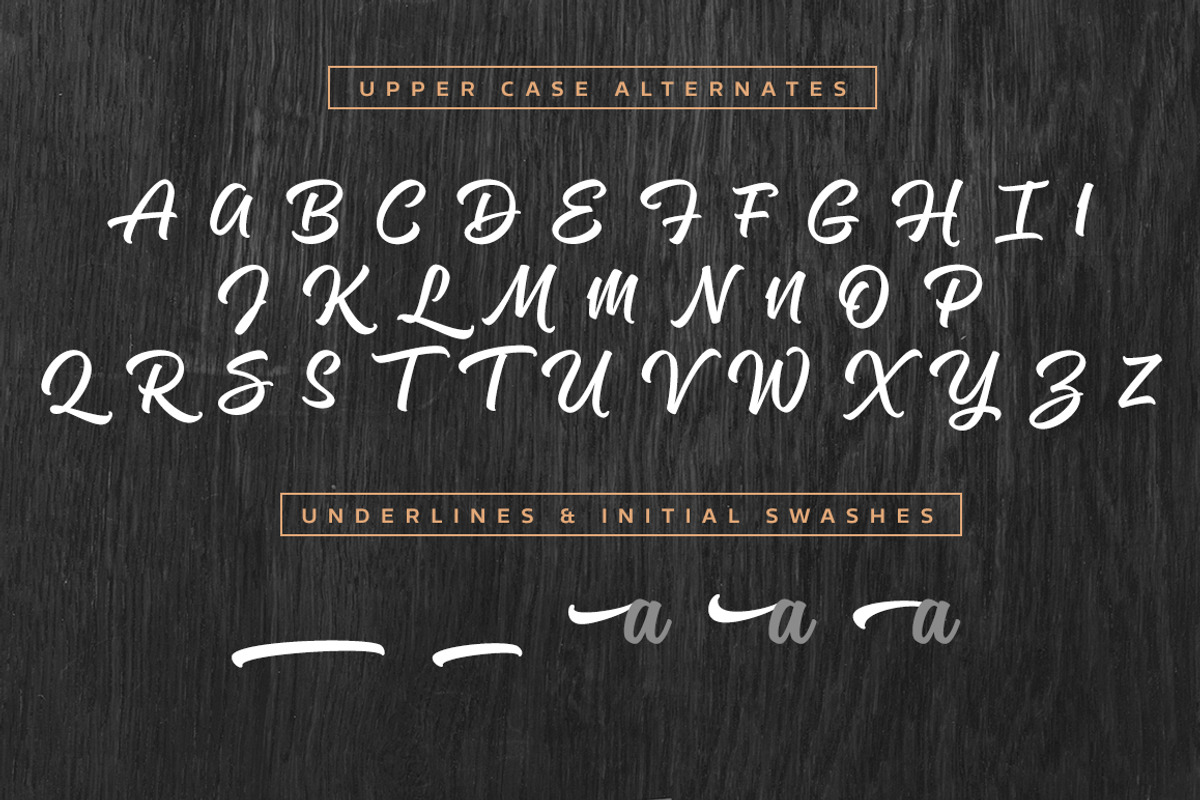 UPPER CASE ALTERNATES
A a B C D E F F G H I I
J K L M m N n O P
Q R S S T T U V W X Y Z Z
UNDERLINES & INITIAL SWASHES
a a a